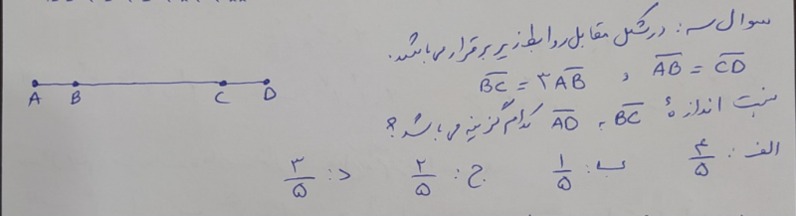 سوال سه: در شکل مقابل روابط زیر برقرار می‌باشد.
AB = CD و BC = ۳AB
A B C D
نسبت اندازهٔ BC به AD کدام گزینه می‌باشد؟
الف: ۴/۵ ب: ۱/۵ ج: ۲/۵ د: ۳/۵